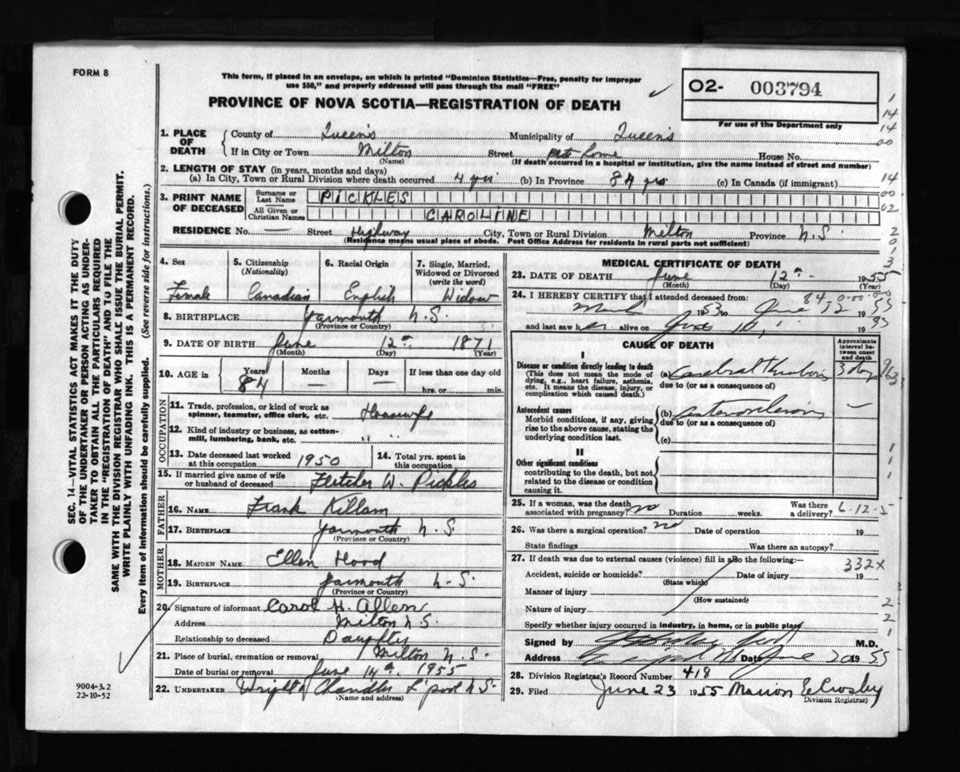 FORM 8
This form, if placed in an envelope, on which is printed "Dominion Statistics—Free, penalty for improper
use $50," and properly addressed will pass through the mail "FREE"
PROVINCE OF NOVA SCOTIA—REGISTRATION OF DEATH
O2- 003794
For use of the Department only
1. PLACE OF DEATH
County of Queens Municipality of Queens
If in City or Town Milton Street at home House No.
(Name) (If death occurred in a hospital or institution, give the name instead of street and number)
2. LENGTH OF STAY (in years, months and days)
(a) In City, Town or Rural Division where death occurred 4 yrs (b) In Province 84 yrs (c) In Canada (if immigrant)
3. PRINT NAME OF DECEASED
Surname or Last Name PICKLES
All Given or Christian Names CAROLINE
RESIDENCE No. — Street Highway City, Town or Rural Division Milton Province N.S.
(Residence means usual place of abode. Post Office Address for residents in rural parts not sufficient)
4. Sex Female
5. Citizenship (Nationality) Canadian
6. Racial Origin English
7. Single, Married, Widowed or Divorced (write the word) Widow
8. BIRTHPLACE Yarmouth N.S.
(Province or Country)
9. DATE OF BIRTH June 12th 1871
(Month) (Day) (Year)
10. AGE in Years 84 Months — Days — If less than one day old hrs. or min.
OCCUPATION
11. Trade, profession or kind of work as spinner, teamster, office clerk, etc. Housewife
12. Kind of industry or business, as cotton-mill, lumbering, bank, etc. " "
13. Date deceased last worked at this occupation 1950
14. Total yrs. spent in this occupation
15. If married give name of wife or husband of deceased Fletcher W. Pickles
FATHER
16. Name Frank Killam
17. Birthplace Yarmouth N.S.
(Province or Country)
MOTHER
18. Maiden Name Ellen Hood
19. Birthplace Yarmouth N.S.
(Province or Country)
20. Signature of informant Carol H. Allen
Address Milton N.S.
Relationship to deceased Daughter
21. Place of burial, cremation or removal Milton N.S.
Date of burial or removal June 14th 1955
22. Undertaker Wright & Chandler L'pool N.S.
(Name and address)
MEDICAL CERTIFICATE OF DEATH
23. DATE OF DEATH June 12th 1955
(Month) (Day) (Year)
24. I HEREBY CERTIFY that I attended deceased from:
53 to June 12 1955
and last saw her alive on 10
CAUSE OF DEATH
Approximate interval between onset and death
I
Disease or condition directly leading to death
(This does not mean the mode of dying, e.g., heart failure, asthenia, etc. It means the disease, injury, or complication which caused death.)
(a) Cerebral Thrombosis 3 days
due to (or as a consequence of)
Antecedent causes
Morbid conditions, if any, giving rise to the above cause, stating the underlying condition last.
(b) Arteriosclerosis
due to (or as a consequence of)
(c)
II
Other significant conditions
contributing to the death, but not related to the disease or condition causing it.
25. If a woman, was the death associated with pregnancy? no Duration weeks. Was there a delivery?
6-12-5
26. Was there a surgical operation? no Date of operation 19
State findings Was there an autopsy?
27. If death was due to external causes (violence) fill in also the following:—
332x
Accident, suicide or homicide? Date of injury 19
(State which)
Manner of injury
(How sustained)
Nature of injury
Specify whether injury occurred in industry, in home, or in public place
Signed by M.D.
Address Date June 20 1955
28. Division Registrar's Record Number 418
29. Filed June 23 1955 Marion E Crosby
(Division Registrar)
SEC. 14—VITAL STATISTICS ACT MAKES IT THE DUTY
OF THE UNDERTAKER OR PERSON ACTING AS UNDER-
TAKER TO OBTAIN ALL THE PARTICULARS REQUIRED
IN THE "REGISTRATION OF DEATH" AND TO FILE THE
SAME WITH THE DIVISION REGISTRAR WHO SHALL ISSUE THE BURIAL PERMIT.
WRITE PLAINLY WITH UNFADING INK. THIS IS A PERMANENT RECORD.
Every item of information should be carefully supplied. (See reverse side for instructions.)
9004-3.2
22-10-52